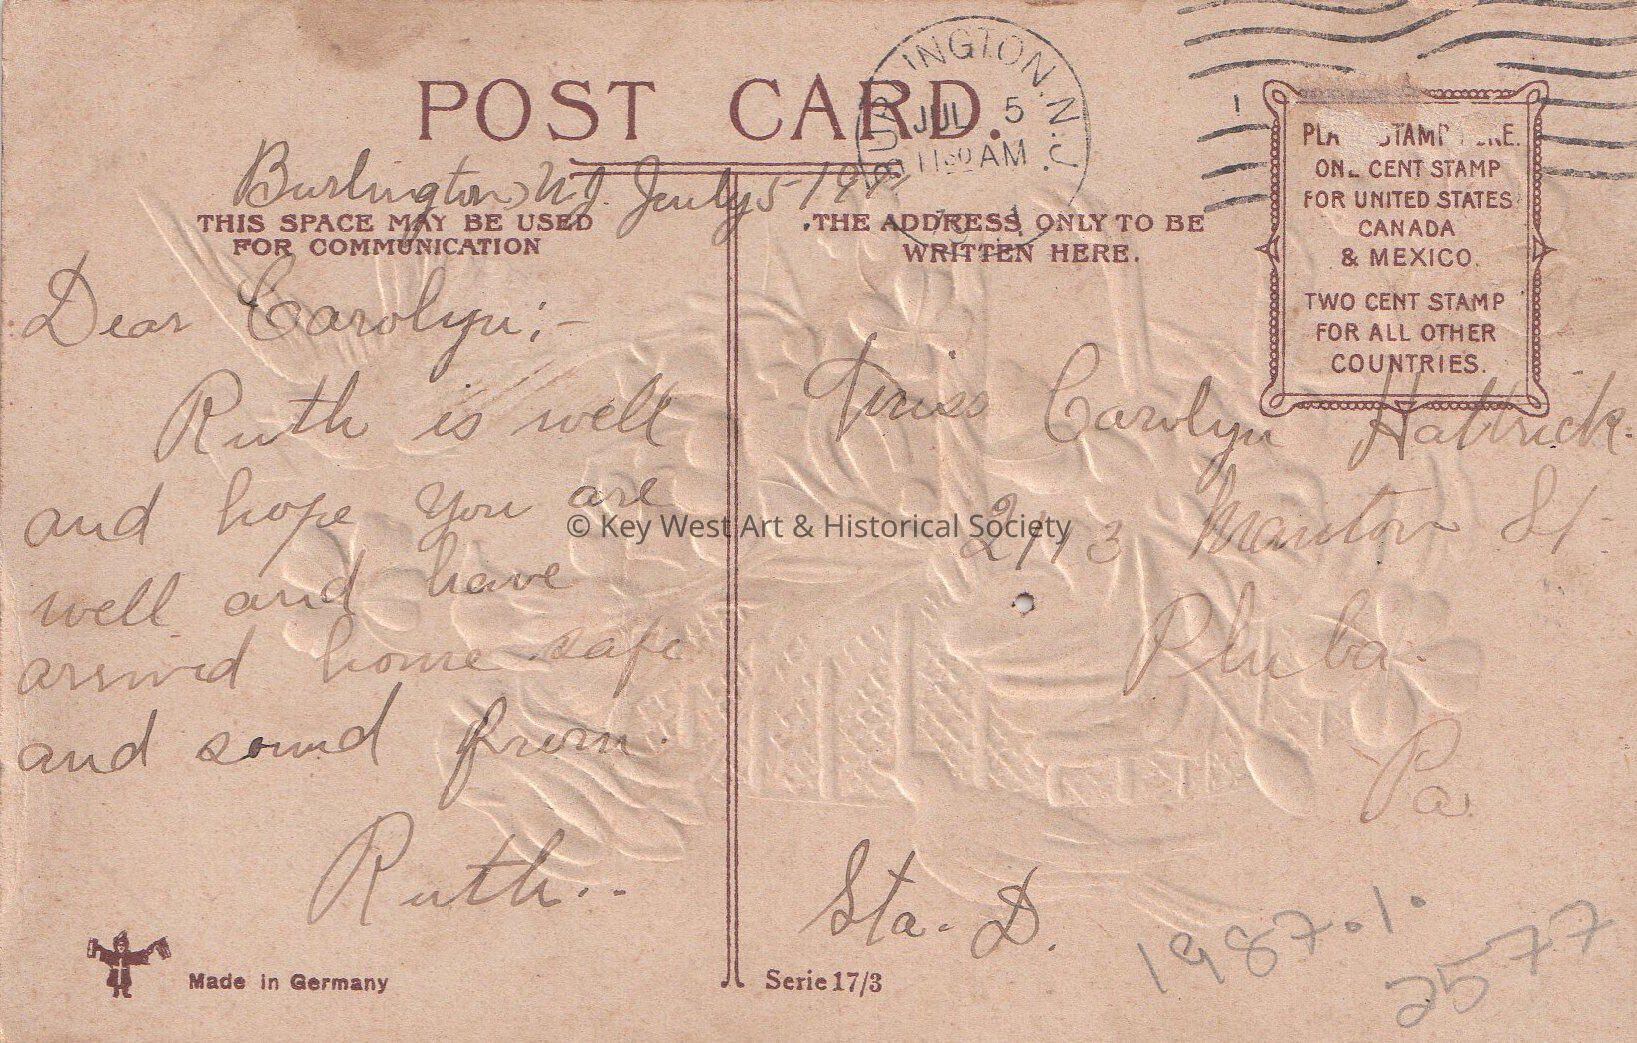 POST CARD.
INGTON. N.J.
JUL 5
1130 AM
Burlington, N.J. July 5-
THIS SPACE MAY BE USED
FOR COMMUNICATION
Dear Carolyn;-
Ruth is well
and hope you are
well and have
arrived home safe
and sound from
Ruth..
Made in Germany
THE ADDRESS ONLY TO BE
WRITTEN HERE.
STAMP
ONE CENT STAMP
FOR UNITED STATES
CANADA
& MEXICO.
TWO CENT STAMP
FOR ALL OTHER
COUNTRIES.
Miss Carolyn Hattrick.
Manton St
Phila.
Pa.
Sta. D.
Serie 17/3
1987.1.
2577
© Key West Art & Historical Society